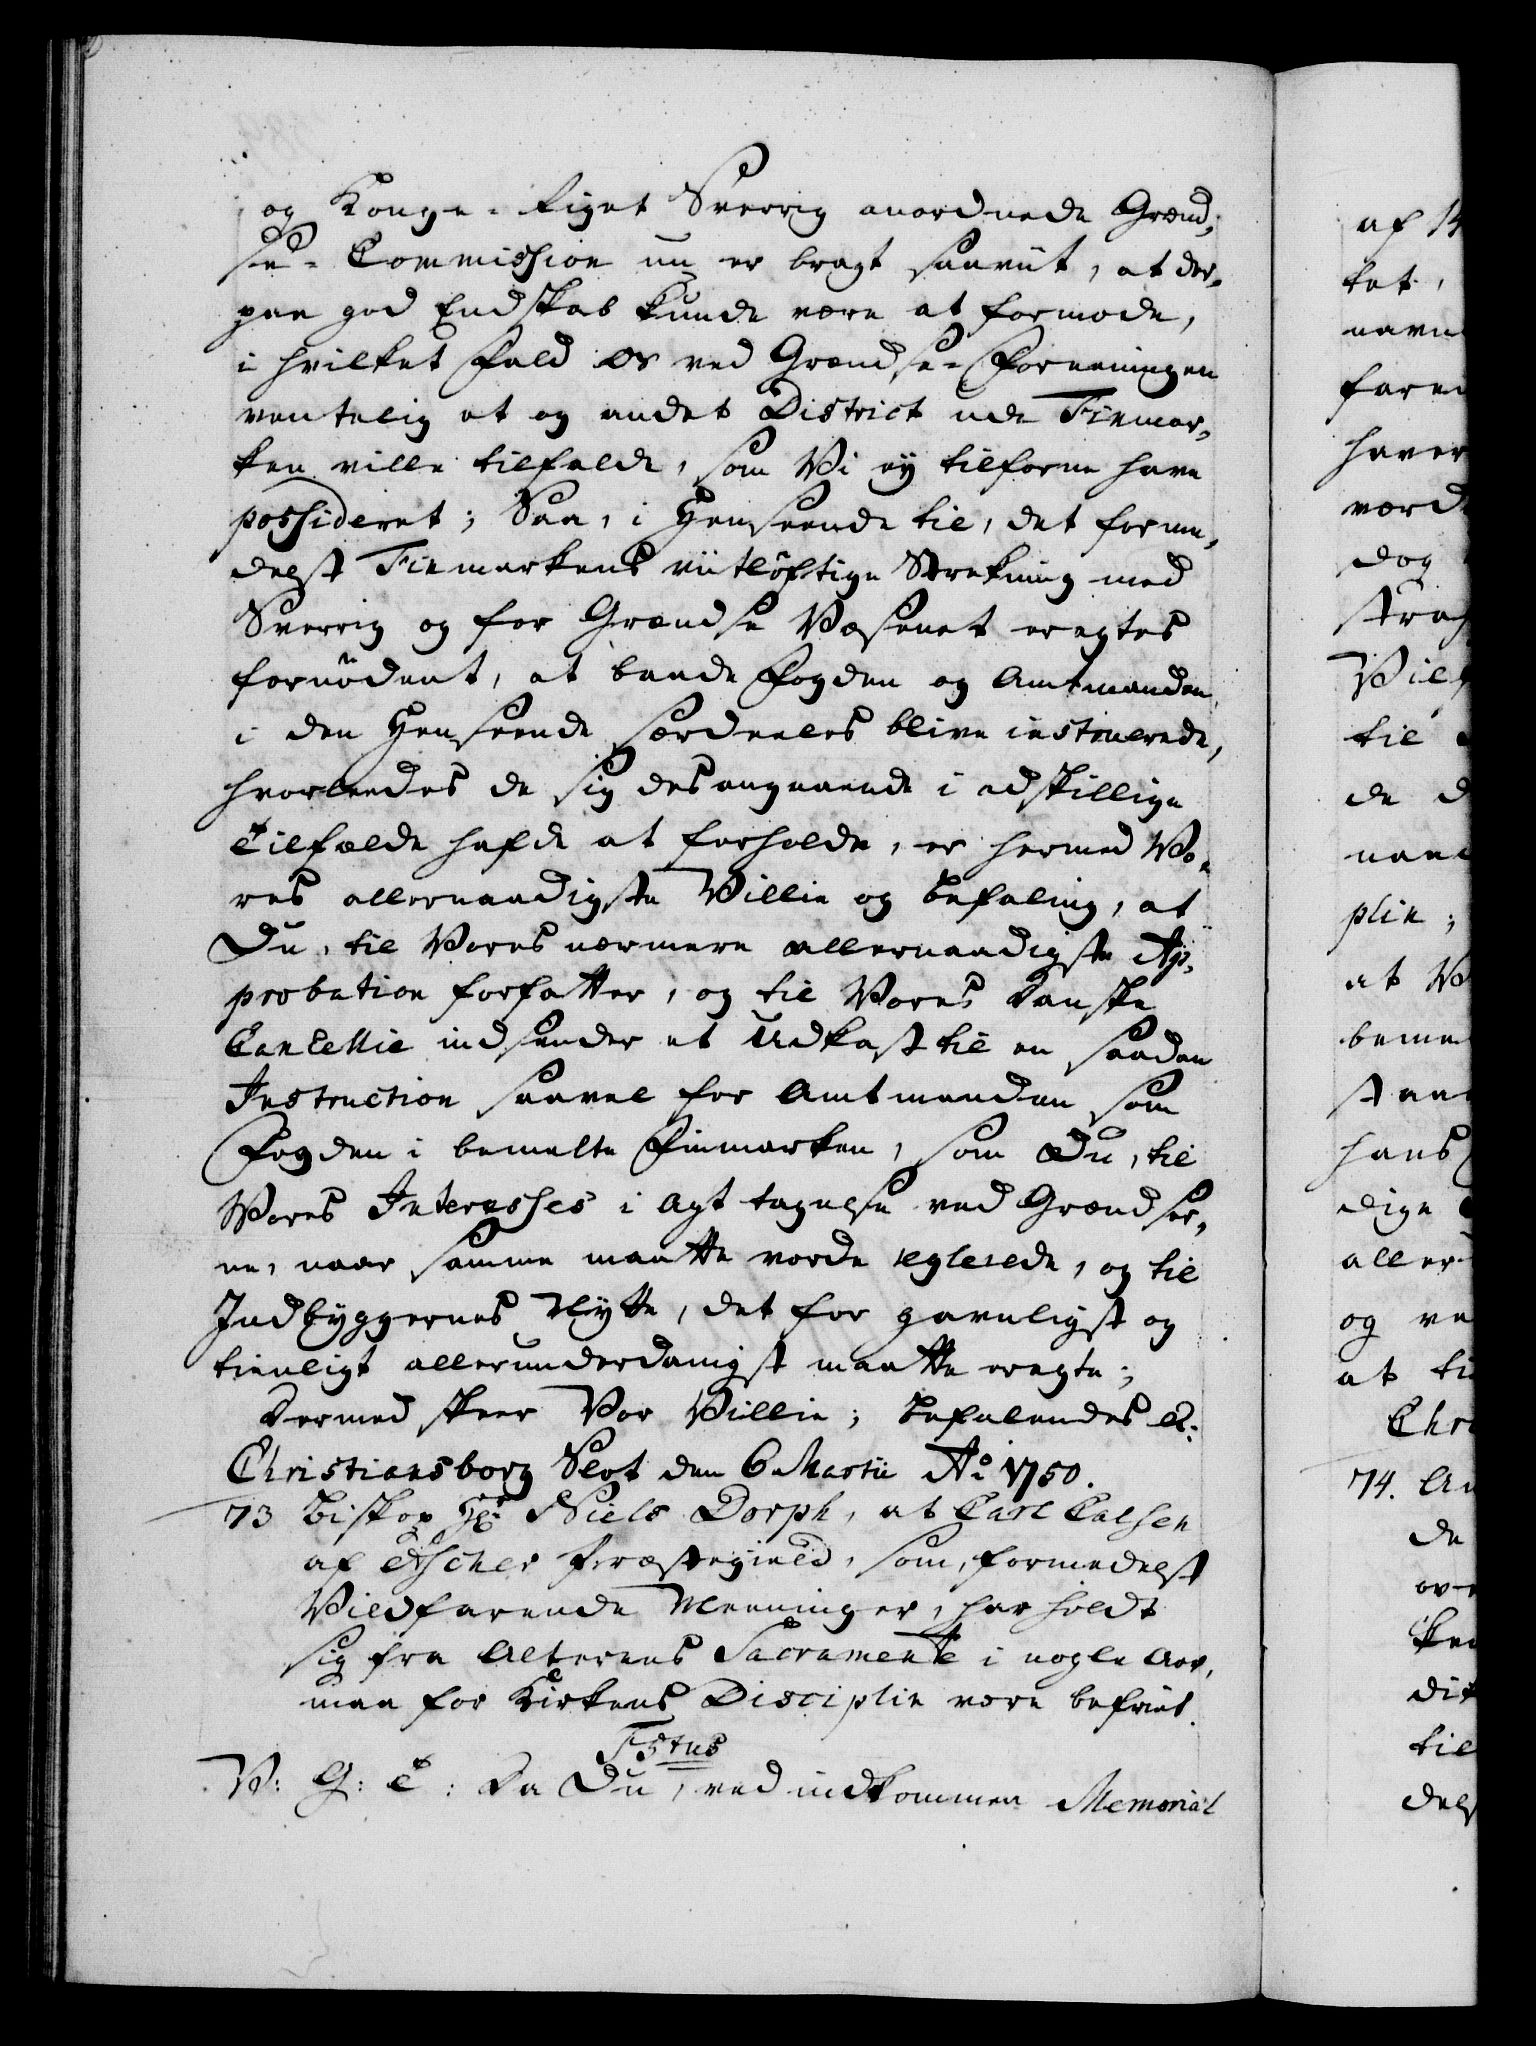 og Konge-Riget Sverrig anordnede Grænd-
se-Commission nu er bragt saaviit, at der-
paa god Endskab kunde være at formode,
i hvilket Fald Os ved Grændse-Foreeningen
ventelig et og andet District udi Finmar-
ken ville tilfalde, som Vi ey tilforne have
possideret; Saa, i Henseende til, det forme-
delst Finmarkens viitløftige Strekning med
Sverrig og for Grændse Væsenet eragtes
fornødent, at baade Fogden og Amtmanden
i den Henseende særdeeles blive instruerede,
hvorleedes de sig desangaaende i adskillige
Tilfælde hafde at forholde, er hermed Vo-
res allernaadigste Villie og Befaling, at
Du, til Vores nærmere allernaadigste Ap-
probation forfatter, og til Vores Danske
Cancellie indsender et Udkast til en saadan
Instruction saavel for Amtmanden som
Fogden i bemelte Finmarken, som Du, til
Vores Interesses i Agt tagelse ved Grændser-
ne, naar samme maatte vorde reglerede, og til
Indbyggernes Nytte, det for gavnligst og
tienligt allerunderdanigst maatte eragte;
Dermed skeer Vor Villie; Befalendes &.
Christiansborg Slot den 6 Martii Ao 1750.
73 Biskop Hr: Niels Dorph, at Carl Calsen
af Ascher Præstegield, som, formedelst
Vildfarende Meeninger, har holdt
sig fra Alterens Sacramente i nogle Aar,
maa for Kirkens Disciplin være befriet.
F5tus
V: G: T: Da Du, ved indkommen Memorial
af
ket,
dog
til
de
plin;
at
og
at
74.
de
til